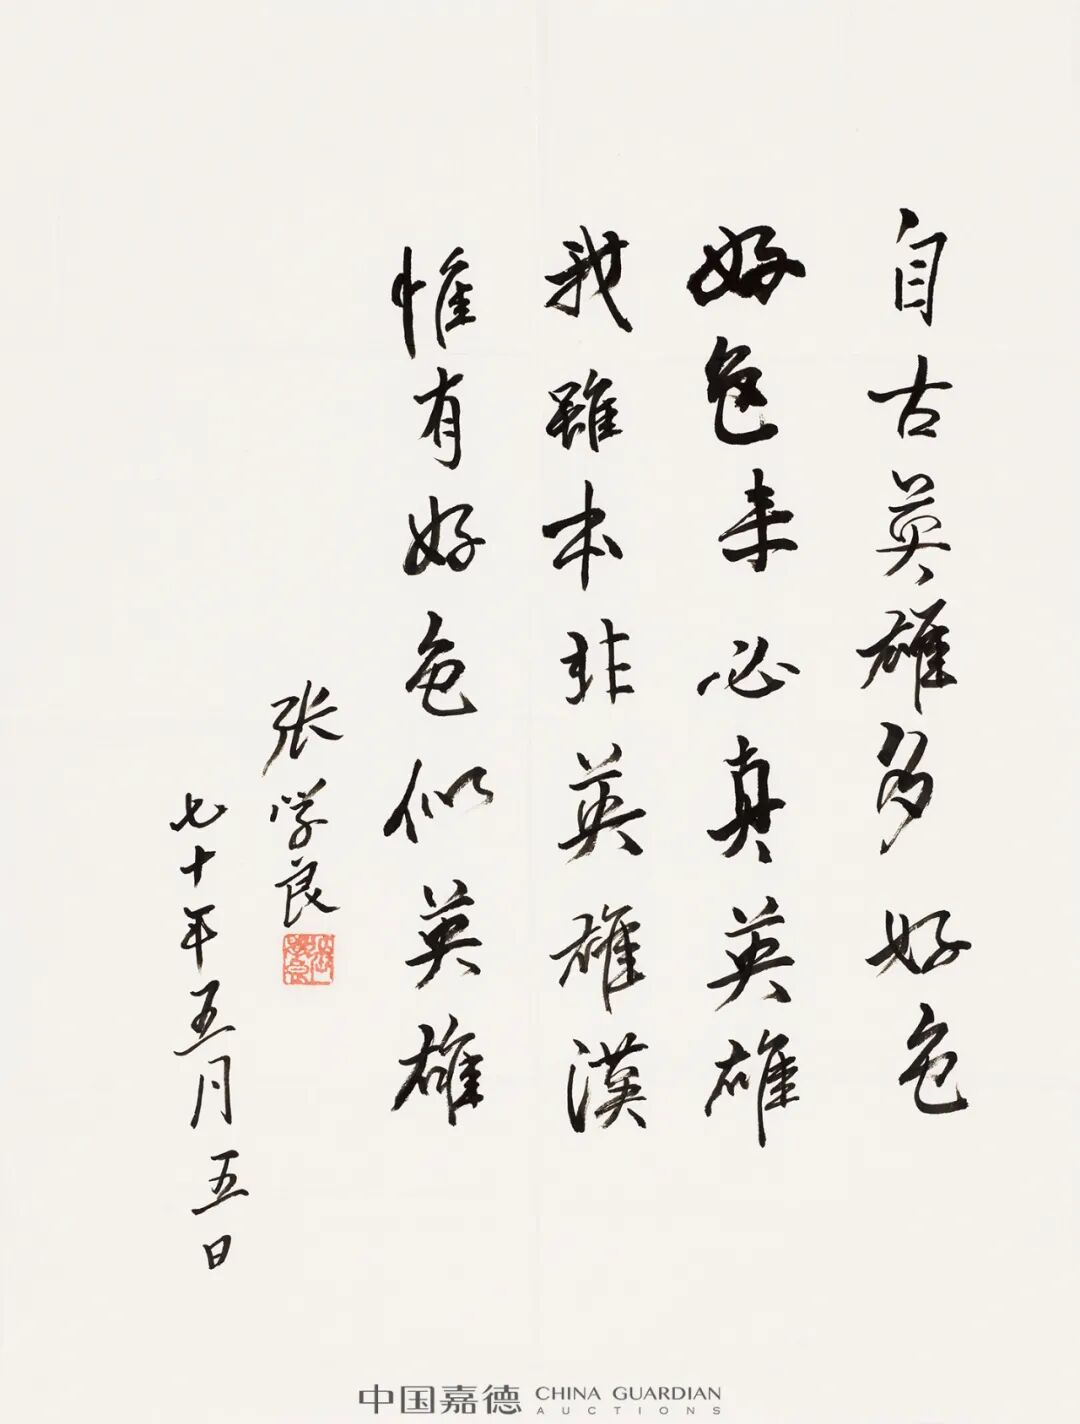 自古英雄多好色
好色未必真英雄
我雖本非英雄漢
惟有好色似英雄
张学良
七十年五月五日
中国嘉德 CHINA GUARDIAN AUCTIONS